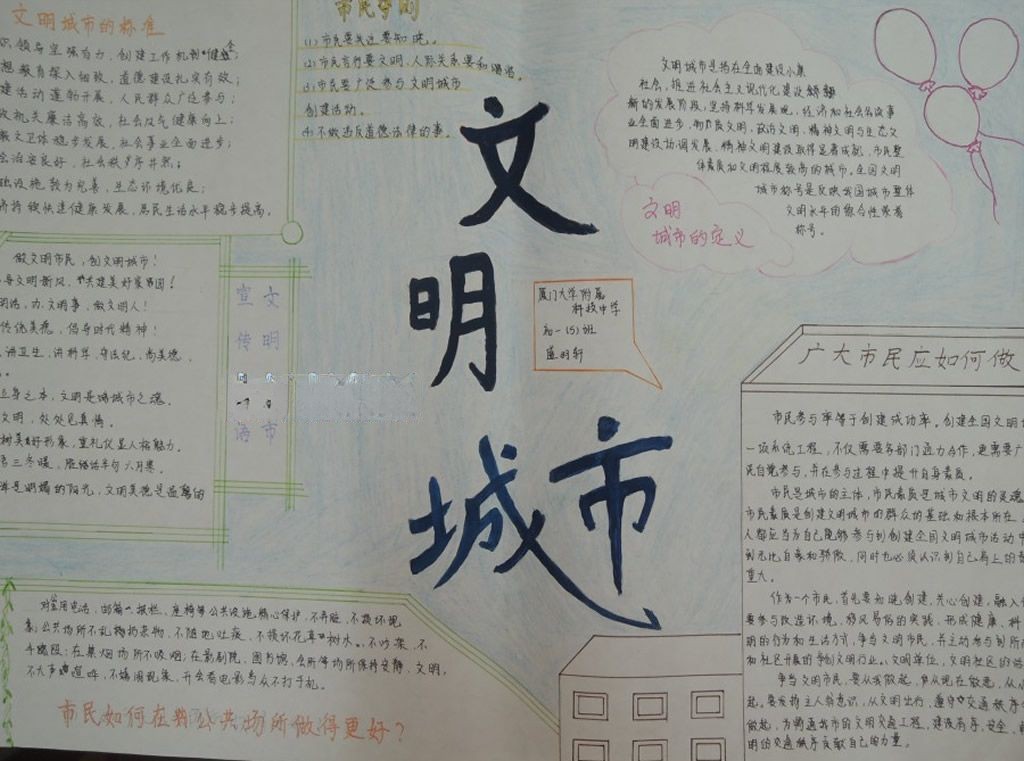 文明城市的标准
领导坚强有力,创建工作机制健全;
教育深入细致,道德建设扎实有效;
建活动蓬勃开展,人民群众广泛参与;
政机关廉洁高效,社会风气健康向上;
教文卫体稳步发展,社会事业全面进步;
会治安良好,社会秩序井然;
础设施较为完善,生态环境优良;
济持续快速健康发展,居民生活水平稳步提高。
市民守则
(2)市民言行要文明,人际关系要和谐。
(3)市民要广泛参与文明城市
创建活动。
(4)不做违反道德法律的事。
文明城市是指在全面建设小康
社会,推进社会主义现代化建设
新的发展阶段,坚持科学发展观,经济和社会各项事
业全面进步,物质文明,政治文明,精神文明与生态文
明建设协调发展,精神文明建设取得显著成就,市民整
体素质和文明程度较高的城市。全国文明
城市称号是反映我国城市整体
文明水平的综合性荣誉
称号。
文明
城市的定义
做文明市民,创文明城市!
文明新风,共建美好家园!
明话,办文明事,做文明人!
传统美德,倡导时代精神!
讲卫生,讲科学,守法纪,尚美德,
立身之本,文明是铸城市之魂。
文明,处处见真情。
树美好形象,重礼仪显人格魅力。
明媚的阳光,文明美德是
文明
城市
宣传
语
文明城市
厦门大学附属
科技中学
初一(5)班
广大市民应如何做
市民参与率等于创建成功率。创建全国文明
一项系统工程,不仅需要各部门通力合作,更需要广
民自觉参与,并在参与过程中提升自身素质。
市民是城市的主体,市民素质是城市文明的灵魂
市民素质是创建文明城市的群众的基础和根本所在
人都应当为自己能够参与到创建全国文明城市活动中
到无比自豪和骄傲,同时也必须认识到自己肩上的
重大。
作为一个市民,首先要知晓创建,关心创建,融入
要参与改造环境,移风易俗的实践,形成健康、科
明的行为和生活方式,争当文明市民,并主动参与到所
和社区开展的争创文明行业、文明单位,文明社区的活
争当文明市民,要从我做起,从现在做起,从
起。要发扬主人翁意识,从文明出行,遵守交通秩序
做起,为畅通城市的文明交通工程,建设有序、安全、
明的交通秩序贡献自己的力量。
对公用电话,邮箱、报栏、座椅等公共设施精心保护,不弄脏,不损坏现
象;公共场所不乱扔杂物,不随地吐痰,不损坏花草树木,不吵架,不
在禁烟场所不吸烟;在影剧院,图书馆,会所等场所保持安静,文明,
不大声喧哗,不嬉闹现象,开会看电影与众不打手机。
市民如何在公共场所做得更好?